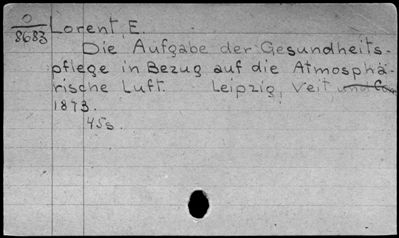 O
8683
Lorent, E.
Die Aufgabe der Gesundheits-
pflege in Bezug auf die Atmosphä-
rische Luft. Leipzig, Veit und Co.,
1873.
45s.